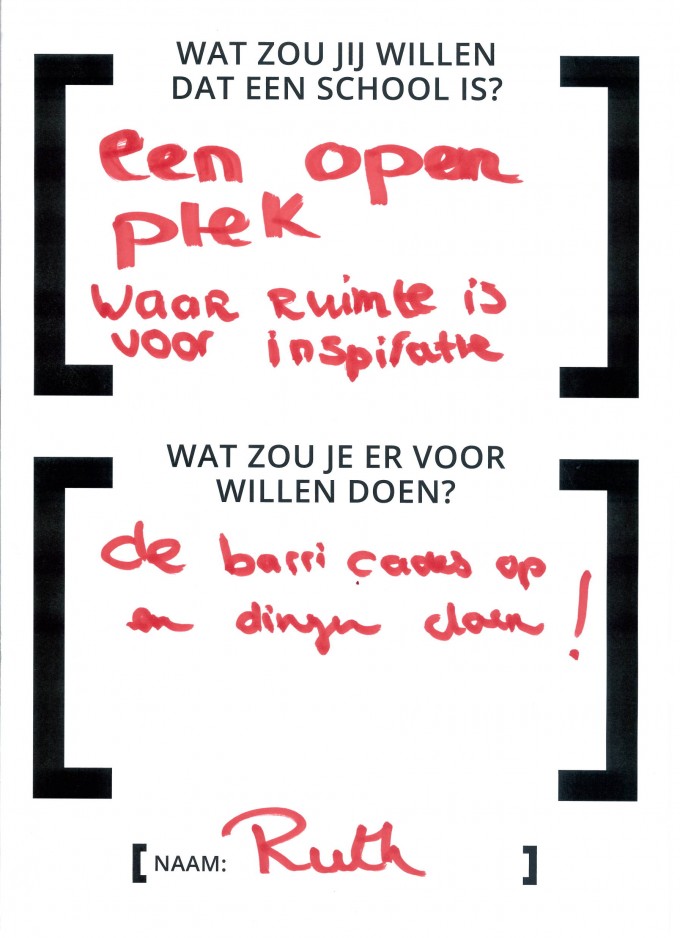 WAT ZOU JIJ WILLEN
DAT EEN SCHOOL IS?
een open
plek
waar ruimte is
voor inspiratie
WAT ZOU JE ER VOOR
WILLEN DOEN?
de barricades op
en dingen doen!
[ NAAM: Ruth ]